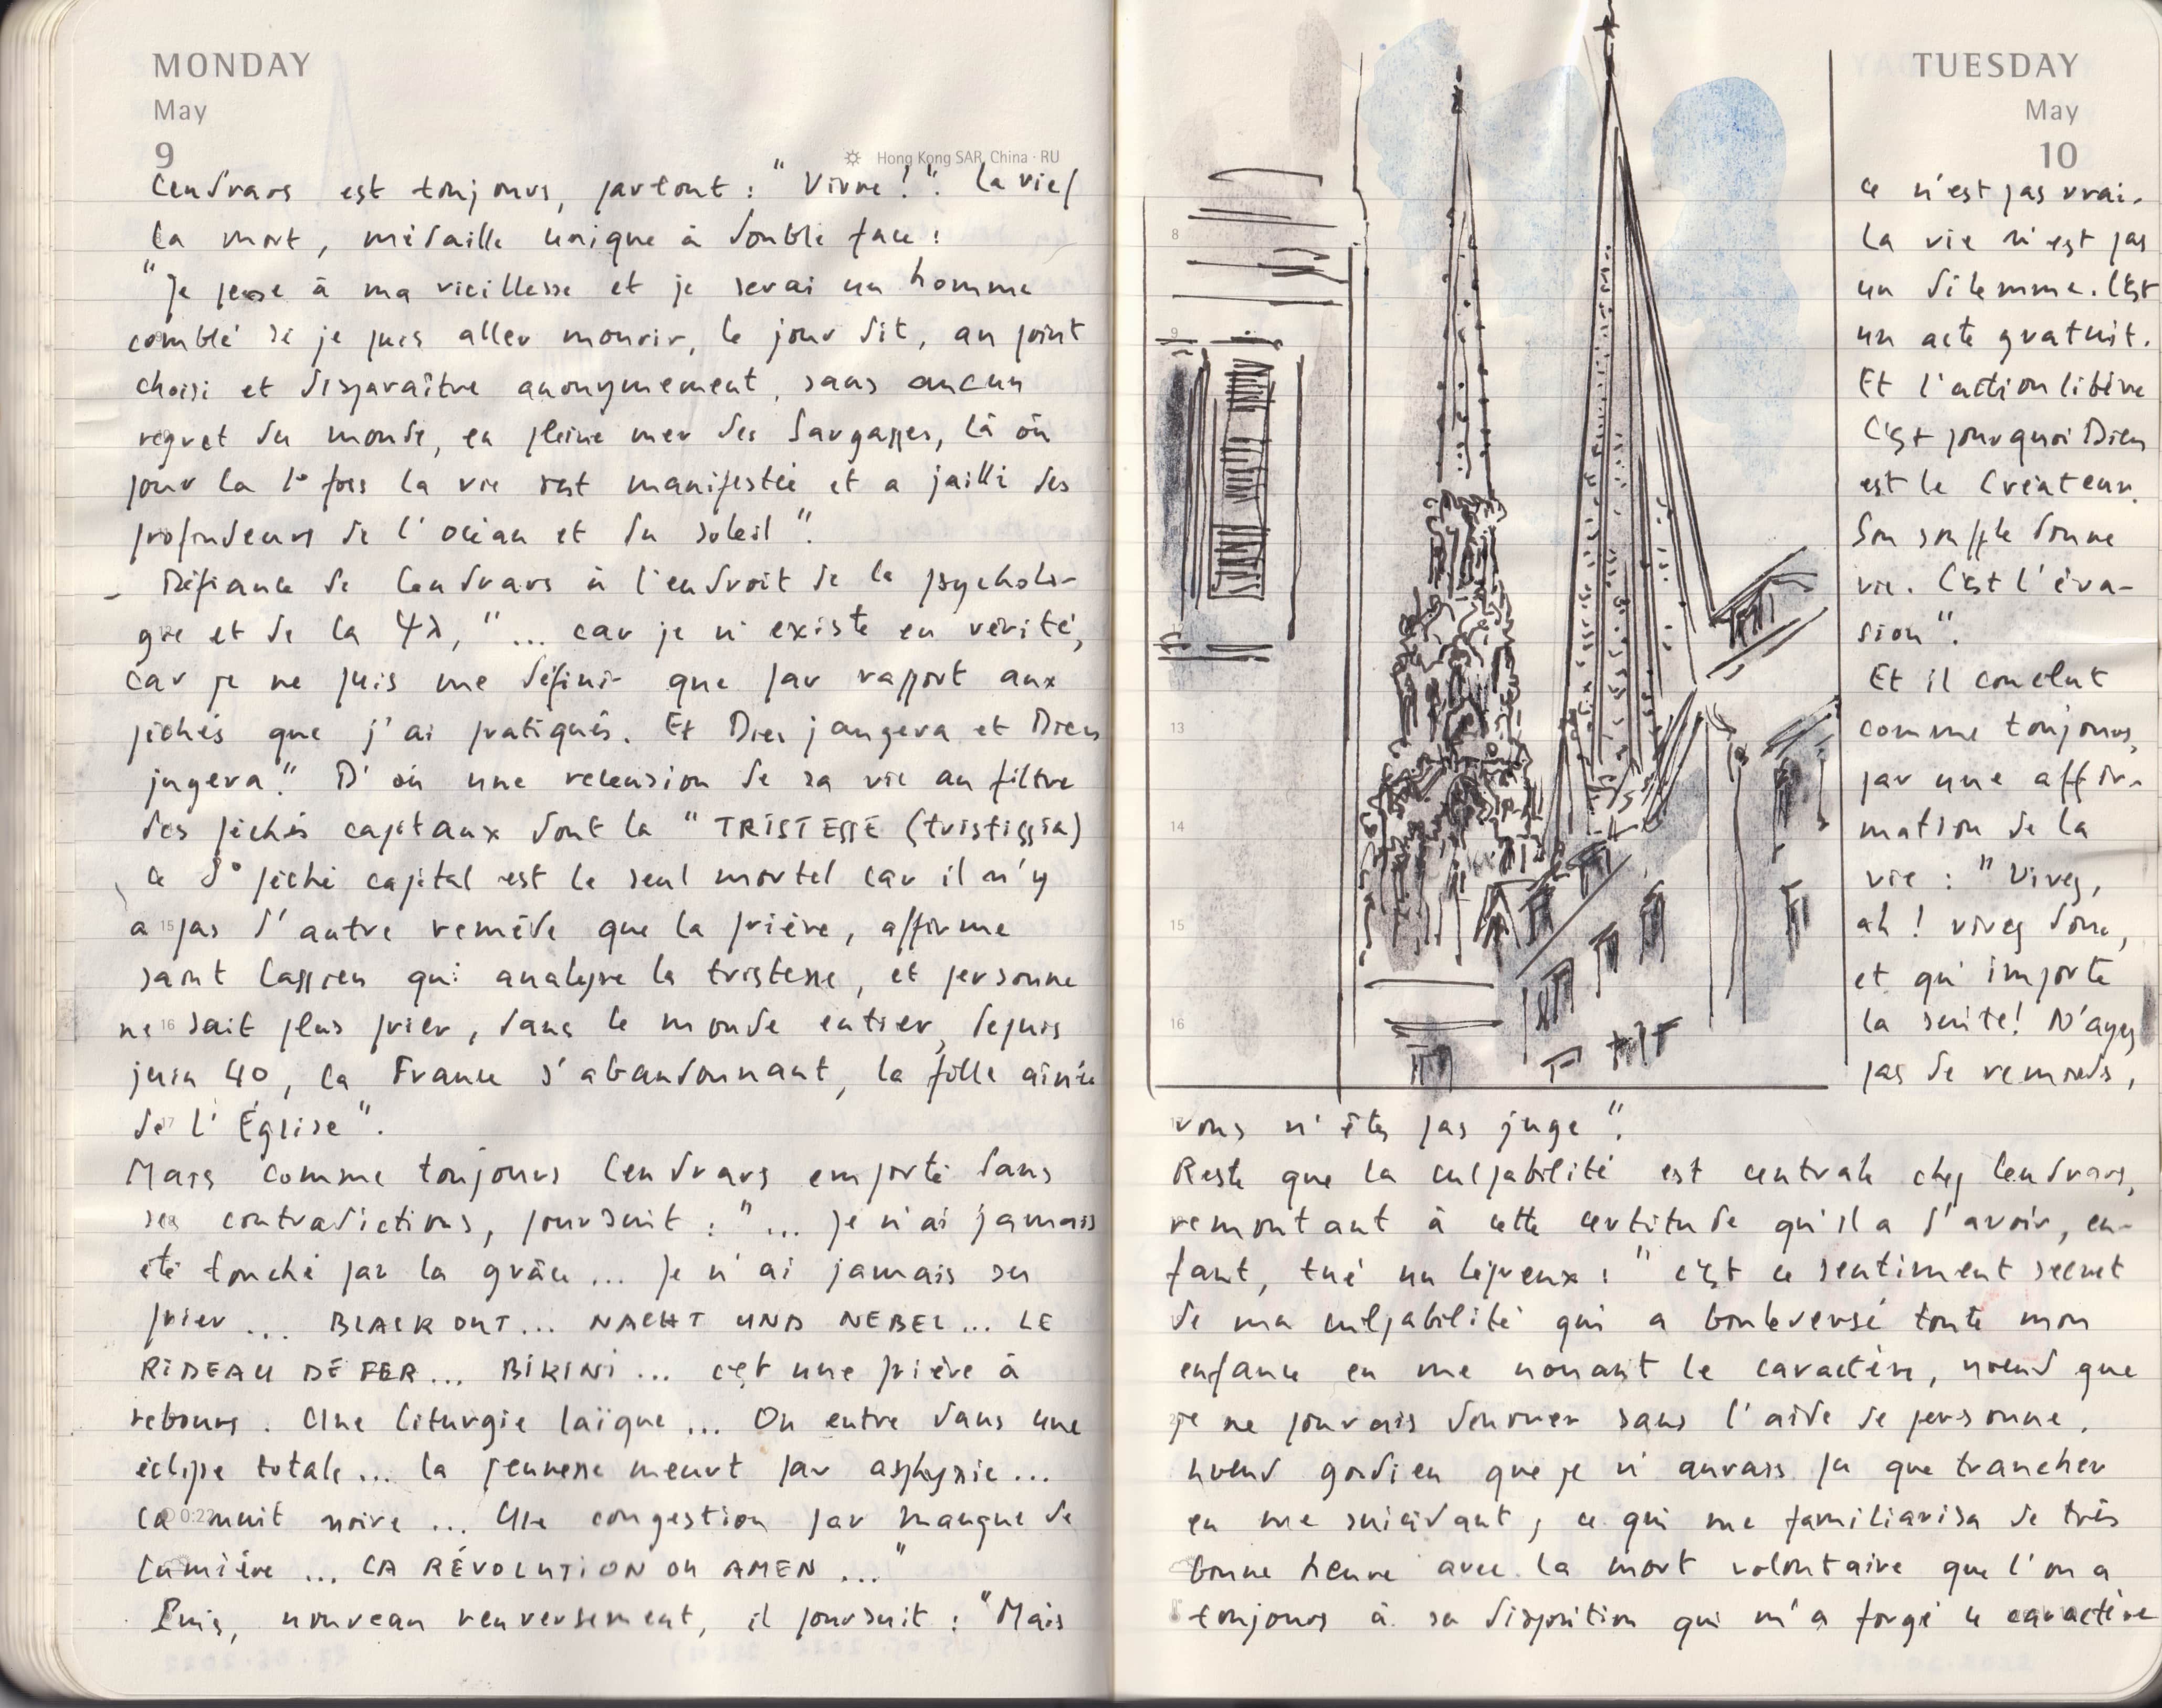 MONDAY
May
9
Hong Kong SAR, China · RU
Cendrars est toujours, partout : "Vivre !". La vie/
la mort, médaille unique à double face :
"Je pense à ma vieillesse et je serai un homme
comblé si je puis aller mourir, le jour dit, au point
choisi et disparaître anonymement, sans aucun
regret du monde, en pleine mer des Sargasses, là où
pour la 1° fois la vie s'est manifestée et a jailli des
profondeurs de l'océan et du soleil".
- Défiance de Cendrars à l'endroit de la psycholo-
gie et de la Ψλ, "... car je n'existe en vérité,
car je ne puis me définir que par rapport aux
péchés que j'ai pratiqués. Et Dieu jaugera et Dieu
jugera". D'où une recension de sa vie au filtre
des péchés capitaux dont la "TRISTESSE (tristissia)
ce 8° péché capital est le seul mortel car il n'y
a pas d'autre remède que la prière, affirme
saint Cassien qui analyse la tristesse, et personne
ne sait plus prier, dans le monde entier, depuis
juin 40, la France s'abandonnant, la fille aînée
de l'Église".
Mais comme toujours Cendrars emporté dans
ses contradictions, poursuit : "... je n'ai jamais
été touché par la grâce... Je n'ai jamais su
prier... BLACK OUT... NACHT UND NEBEL... LE
RIDEAU DE FER... BIKINI... c'est une prière à
rebours. Une liturgie laïque... On entre dans une
éclipse totale... la jeunesse meurt par asphyxie...
La nuit noire... Une congestion par manque de
lumière... LA RÉVOLUTION OU AMEN..."
Puis, nouveau renversement, il poursuit : "Mais
TUESDAY
May
10
ce n'est pas vrai.
La vie n'est pas
un dilemme. C'est
un acte gratuit.
Et l'action libère
C'est pourquoi Dieu
est le Créateur.
Son souffle donne
vie. C'est l'éva-
sion".
Et il conclut
comme toujours,
par une affir-
mation de la
vie : "Vivez,
ah ! vivez donc,
et qu'importe
la suite ! N'ayez
pas de remords,
vous n'êtes pas juge".
Reste que la culpabilité est centrale chez Cendrars,
remontant à cette certitude qu'il a d'avoir, en-
fant, tué un lépreux : "c'est ce sentiment secret
de ma culpabilité qui a bouleversé toute mon
enfance en me nouant le caractère, nœud que
je ne pouvais dénouer sans l'aide de personne,
nœud gordien que je n'aurais pu que trancher
en me suicidant, ce qui me familiarisa de très
bonne heure avec la mort volontaire que l'on a
toujours à sa disposition qui m'a forgé le caractère
8
9
13
14
15
16